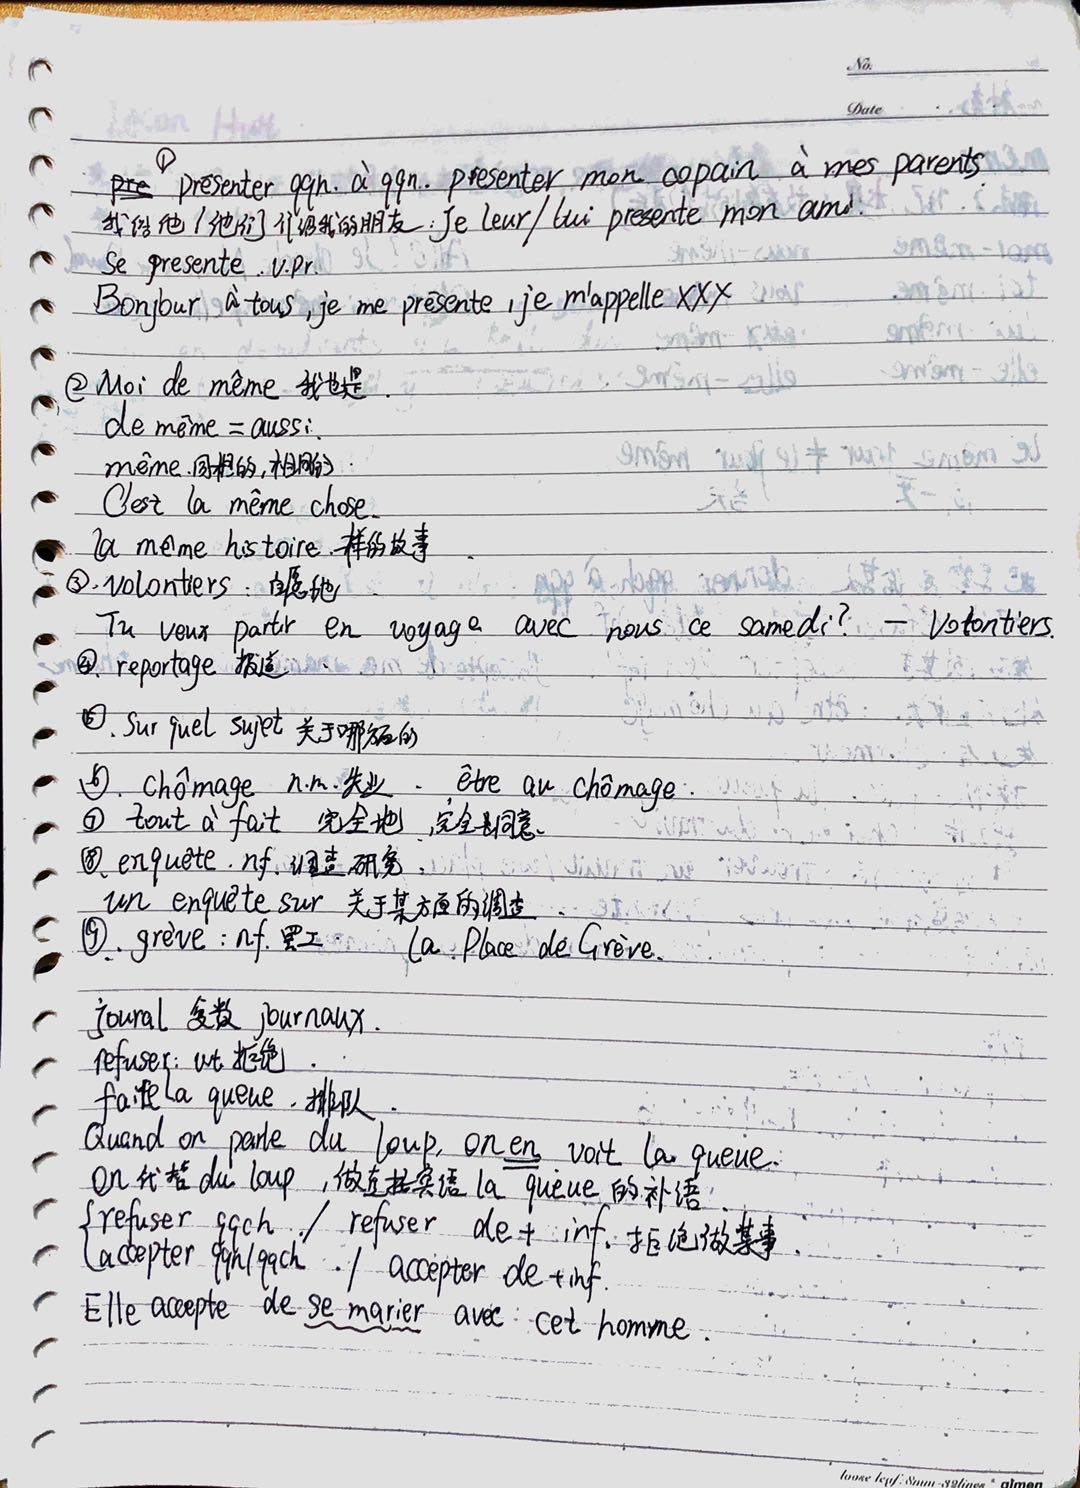 No.
Date
① présenter qqn. à qqn. présenter mon copain à mes parents.
我给他/他们介绍我的朋友: je leur/lui présente mon ami.
Se présente. v.pr.
Bonjour à tous, je me présente, je m'appelle XXX
② Moi de même 我也是.
de même = aussi.
même.同样的,相同的.
C'est la même chose.
la même histoire.一样的故事
③. volontiers: 自愿地
Tu veux partir en voyage avec nous ce samedi? — Volontiers.
④. reportage 报道
⑤. Sur quel sujet 关于哪方面的
⑥. chômage n.m. 失业. être au chômage.
⑦ tout à fait 完全地,完全同意.
⑧. enquête. nf. 调查研究.
un enquête sur 关于某方面的调查.
⑨. grève: nf. 罢工 La Place de Grève.
joural 复数 journaux.
refuser: vt. 拒绝.
faire la queue. 排队.
Quand on parle du loup, on en voit la queue.
on代替 du loup,做直接宾语 la queue 的补语.
refuser qqch. / refuser de + inf. 拒绝做某事.
accepter qqn/qqch. / accepter de + inf.
Elle accepte de se marier avec cet homme.
loose leaf: 8mm-32lines